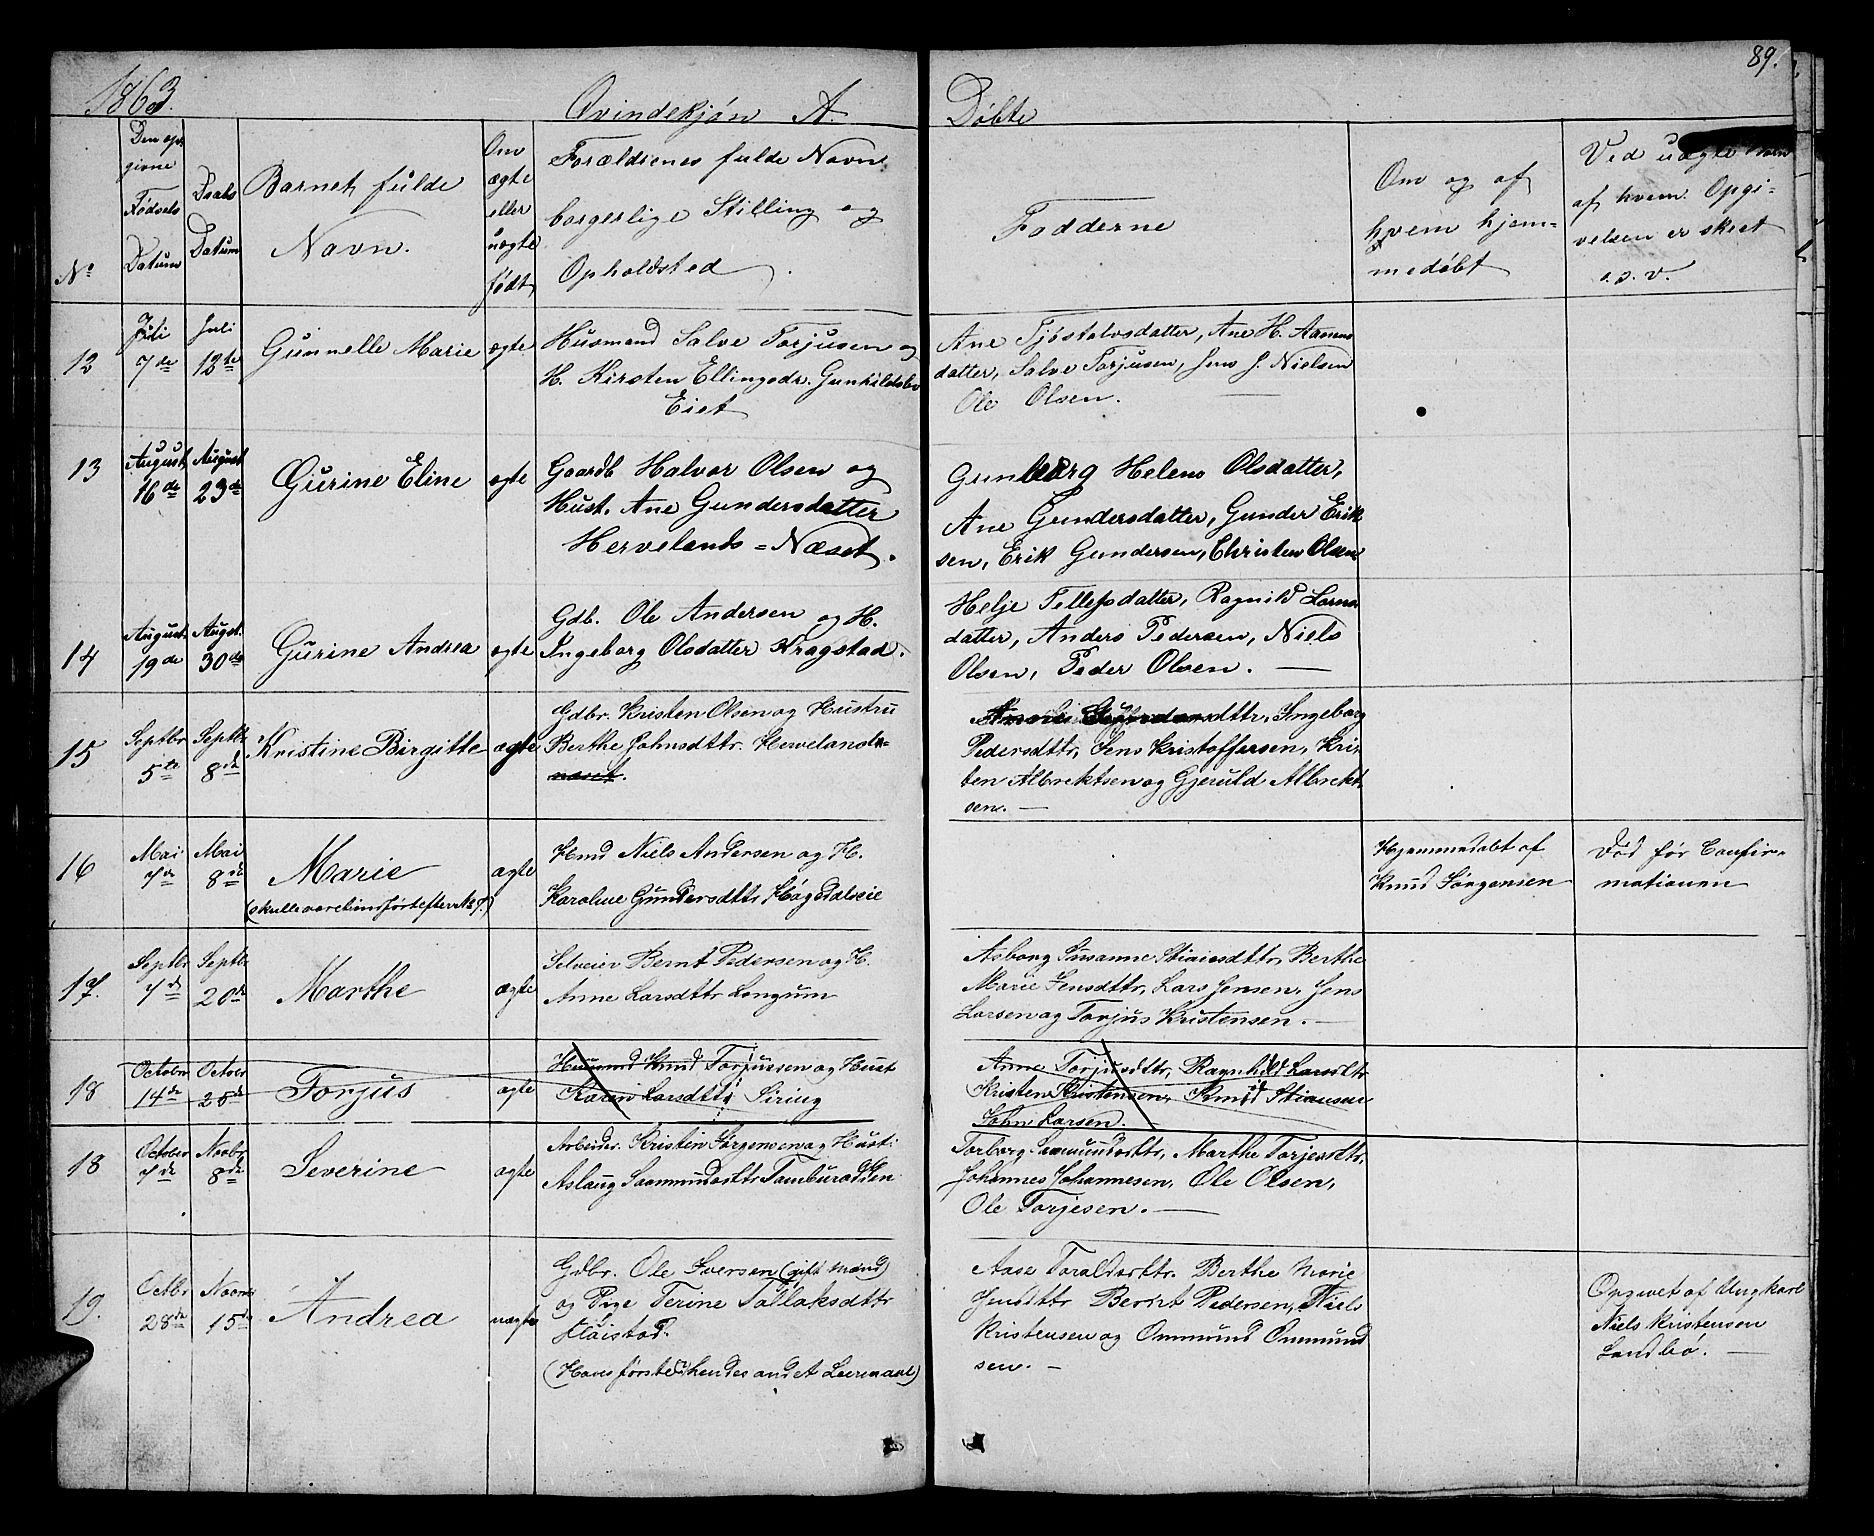 1863.
Qvindekjön A.
Döbte
89.
No
Den op-
givne
Födsels
Datum
Daabs
Datum
Barnets fulde
Navn.
Om
ægte
eller
uægte
født
Forældrenes fulde Navn
borgerlige Stilling og
Opholdsted
Fadderne
Om og af
hvem hjem-
medöbt
Ved uægte
af hvem Opgi-
velsen er skeet
o.s.v.
12
Juli
7de
Juli
12te
Gunnelle Marie
ægte
Husmand Salve Torjusen og
H. Kirsten Ellingsdr. Gunhildsbo
Eiet
Ane Tjöstolvsdatter, Ane H. Aanens
datter, Salve Torjusen, Jens J. Nielsen
Ole Olsen.
13
August
16de
August
23de
Gurine Eline
ægte
Gaardb Halvor Olsen og
Hust. Ane Gundersdatter
Hervelands=Næset.
Gunborg Helene Olsdatter,
Ane Gundersdatter, Gunder Erik
sen, Erik Gundersen, Christen Olsen
14
August.
19de
Augst.
30de
Gurine Andrea
ægte
Gdb. Ole Andersen og H.
Ingeborg Olsdatter Kragstad.
Helje Tellefsdatter, Ragnild Larss
datter, Anders Pedersen, Niels
Olsen, Peder Olsen.
15
Septbr
5te
Septbr
8de
Kristine Birgitte
ægte
Gdbr. Kristen Olsen og Hustru
Berthe Johnsdttr. Hervelands-
næset.
Ingeborg
Pedersdttr, Jens Kristoffersen, Kris
ten Albrektsen og Gjeruld Albrekt
sen.
16
Mai
7de
Mai
8de
Marie
(skulle være indført efter No 7.)
ægte
Hmd Niels Andersen og H.
Karoline Gundersdttr Högedalseie
Hjemmedøbt af
Knud Sörgensen
Død før Confir-
mationen
17.
Septbr
7de
Septbr
20de
Marthe
ægte
Selveier Bernt Pedersen og H.
Anne Larsdttr Longum
Asborg Susanne Stiansdttr, Berthe
Marie Jensdttr, Lars Jensen, Jens
Larsen og Torjus Kristensen.
18
Octobr
14de
Octobr
25de
Torjus
ægte
Husmd Knud Torjussen og Hust
Karen Larsdttr Siring
Anne Torjusdttr, Ragnhild Larsdttr
Kristen Kristensen, Knud Stiansen
John Larsen.
18
October
7de
Novbr
8de
Severine
ægte
Arbeider Kristen Jørgensen og Hust:
Aslaug Saamundsdttr Tambursodden
Torborg Samundsdttr, Marthe Torjersdttr,
Johannes Johannesen, Ole Olsen,
Ole Torjesen.
19.
Octbr
28de
Novmr
15de
Andrea
uægte
Gdbr. Ole Iversen (gift Mand)
og Pige Terine Tallaksdttr
Fløistad.
(Hans første, hendes andet Leiermaal)
Aase Taraldsdttr. Berthe Marie
Jensdttr Bernt Pedersen, Niels
Kristensen og Ommund Ommund
sen.
Opgivet af Ungkarl
Niels Kristensen
Landbö.